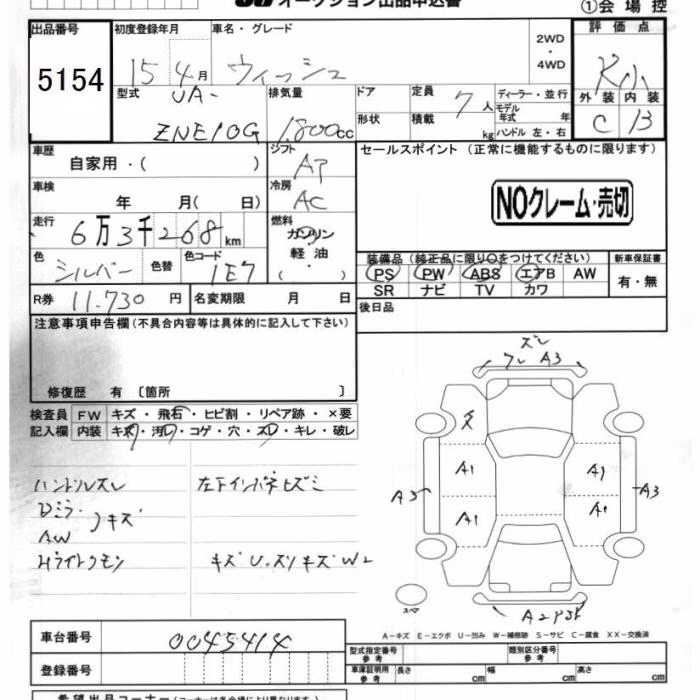 オークション出品申込書
①会場控
出品番号
5154
初度登録年月
車名・グレード
15 4月
ウィッシュ
2WD
・
4WD
評価点
外装 内装
C B
型式
UA-
ZNE10G
排気量
1800cc
ドア
形状
定員
7人
積載
kg
ディーラー・並行
モデル年式 年
ハンドル 左・右
車歴
自家用・( )
シフト
AT
車検
年 月( 日)
冷房
AC
走行
6万3千268km
燃料
ガソリン
軽油
・
色
シルバー
色替
色コード
1E7
R券 11.730 円
名変期限 月 日
セールスポイント (正常に機能するものに限ります)
NOクレーム・売切
装備品 (純正品に限り○をつけてください)
PS PW ABS エアB AW
SR ナビ TV カワ
新車保証書
有・無
後日品
注意事項申告欄 (不具合内容等は具体的に記入して下さい)
修復歴 有 〔箇所 〕
検査員記入欄
FW キズ・飛石・ヒビ割・リペア跡・×要
内装 キズ・汚レ・コゲ・穴・スレ・キレ・破レ
ハンドルズレ
Dミラ・
AW
キズ
左下インパネヒズミ
キズU.スリキズW2
ズレ
ワレ A3
A1
A1
A1
A1
A3
A3
スペア
A-キズ E-エクボ U-凹み W-補修跡 S-サビ C-腐食 XX-交換済
車台番号
0045414
登録番号
型式指定番号
参考
類別区分番号
参考
車庫証明用
参考
長さ cm 幅 cm 高さ cm
希望出品コーナー